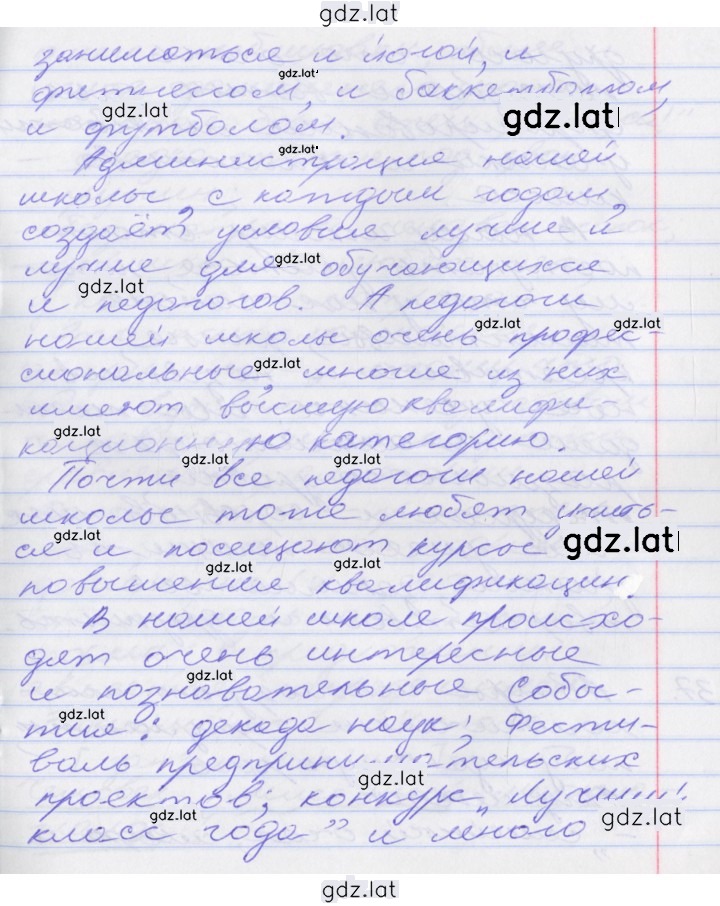 gdz.lat
заниматься и йогой, и
gdz.lat
фитнессом, и баскетболлом,
gdz.lat
gdz.lat
и футболом.
gdz.lat
Администрация нашей
школы с каждым годом
создаёт условия лучше и
лучше для обучающихся
gdz.lat
gdz.lat
и педагогов. А педагоги
gdz.lat
gdz.lat
нашей школы очень профес-
gdz.lat
сиональные, многие из них
имеют высшую квалифи-
gdz.lat
кационную категорию.
gdz.lat
gdz.lat
Почти все педагоги нашей
школы тоже любят учить-
gdz.lat
gdz.lat
ся и посещают курсы
gdz.lat
gdz.lat
повышения квалификации.
В нашей школе происхо-
дят очень интересные
gdz.lat
и познавательные собы-
gdz.lat
тия: декада наук; Фести-
валь предпринимательских
gdz.lat
проектов; конкурс „Лучший
gdz.lat
gdz.lat
класс года” и много
gdz.lat